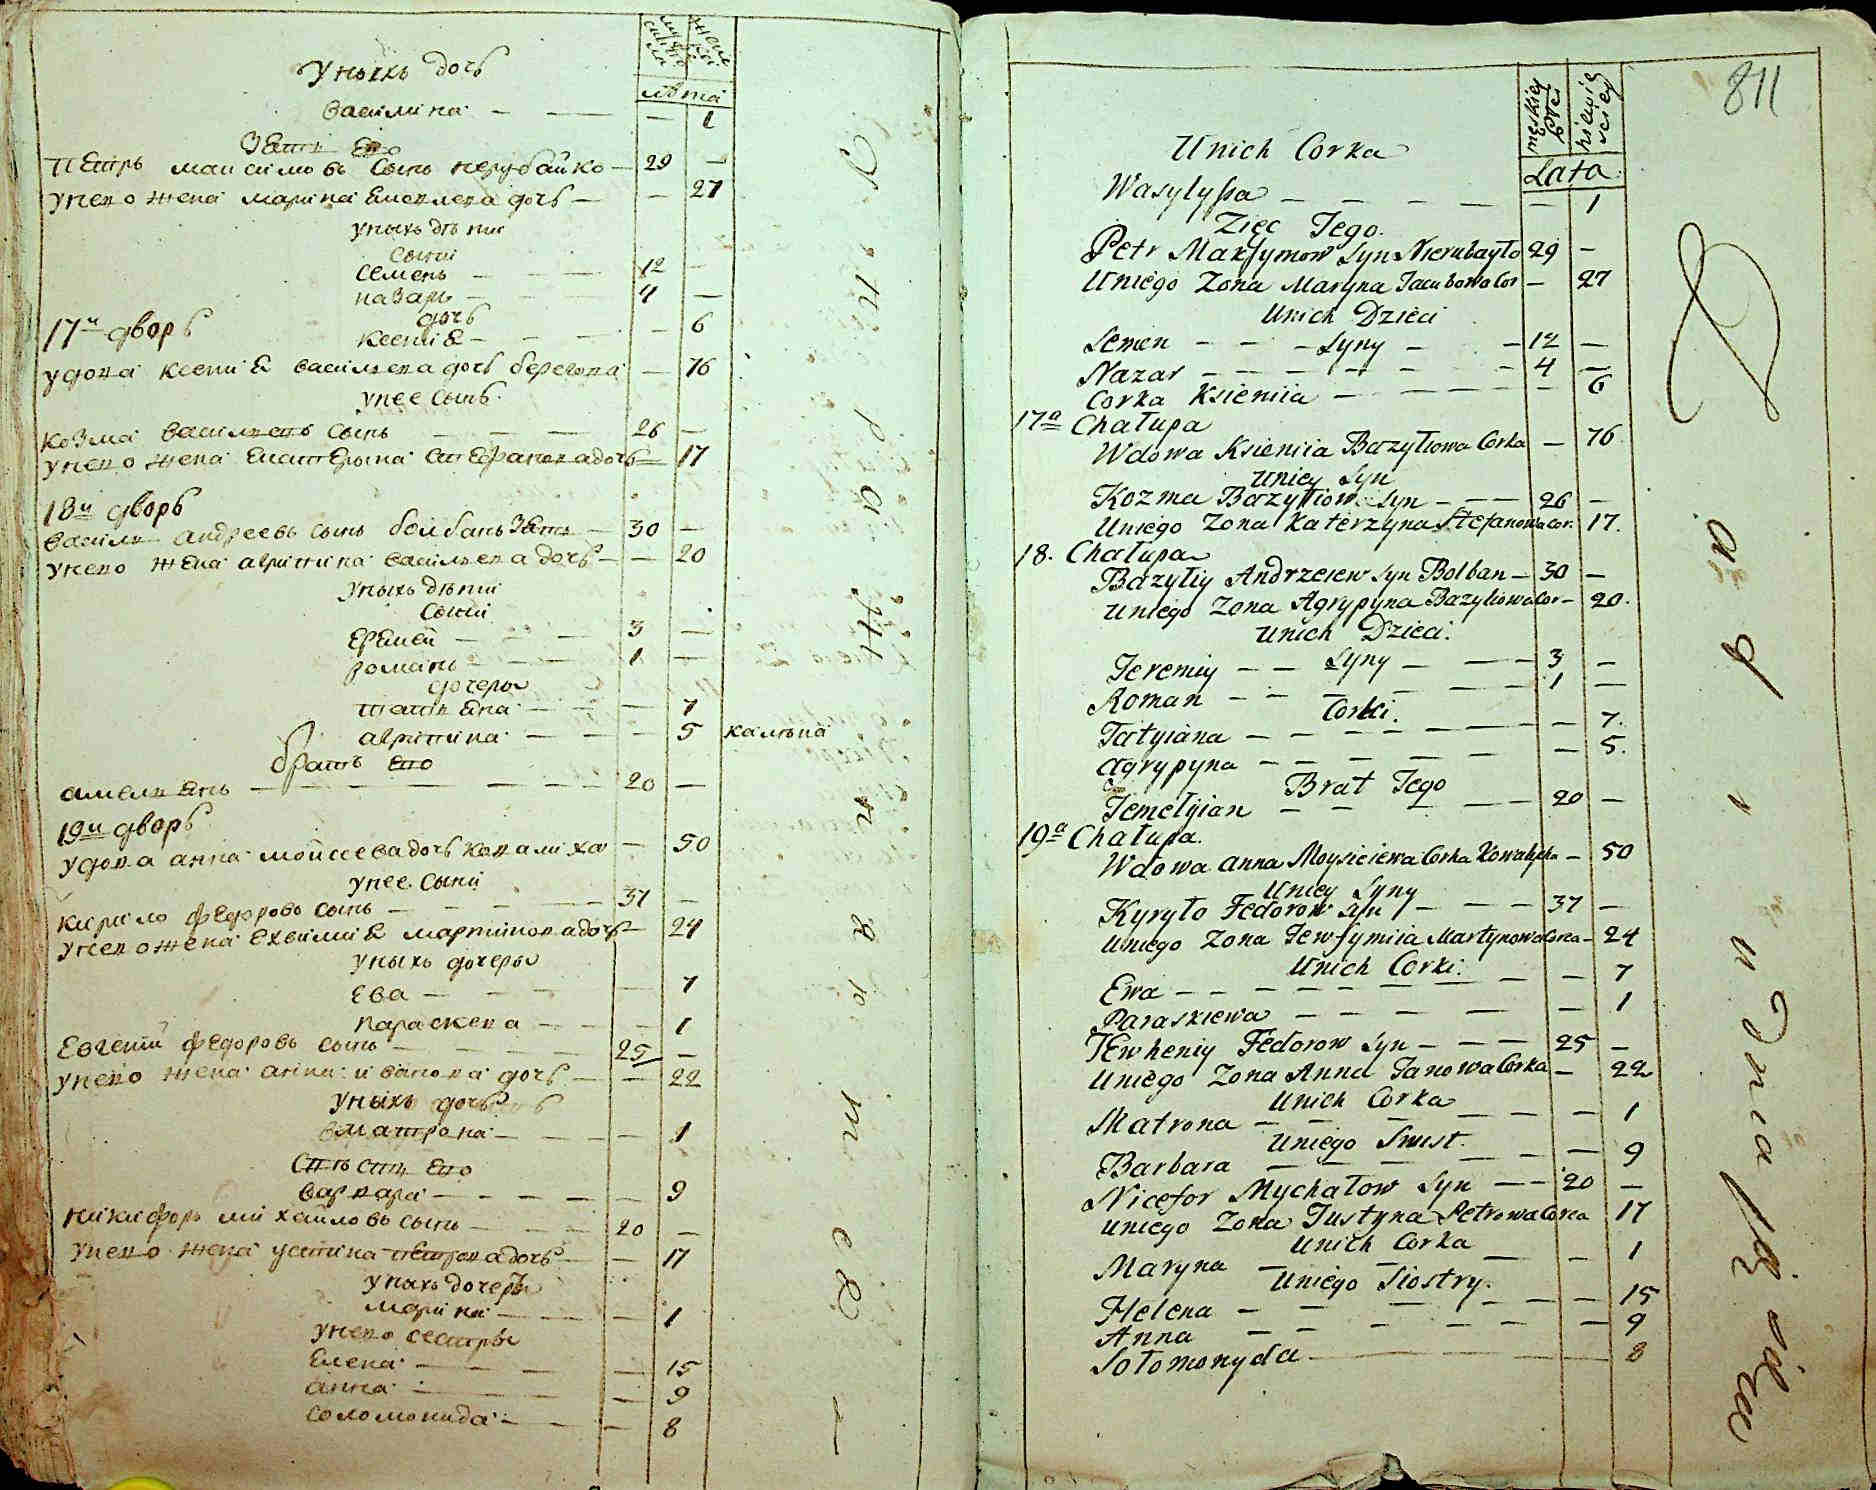 мужеска
женска
лѣта
У ныхъ дочь
василина — — — 1
Зять его
петръ максимовъ сынъ нерубайко — 29 —
у него жена марина якевлева дочь — — 27
у ныхъ дѣти
сыны
семенъ — — — 12 —
назаръ — — — 4 —
дочь
17й дворъ
ксения — — — 6
удова ксения васильева дочь берегова — 76
у нее сынъ
козма васильевъ сынъ — — — 26 —
у него жена екатерына стефанова дочь — 17
18й дворъ
василь андреевъ сынъ болбанъ зять — 30 —
у него жена агрипина васильева дочь — — 20
у ныхъ дѣти
сыны
еремей — — — 3 —
романъ — — — 1 —
дочеры
татияна — — — 7
агрипина — — — 5 калѣка
братъ его
амелиянъ — — — 20 —
19й дворъ
удова анна мойсеева дочь ковалиха — 50
у нее сыны
кирило федоровъ сынъ — — — 37 —
у него жена евфимия мартинова дочь — 24
у ныхъ дочеры
ева — — — 7
параскева — — — 1
евгений федоровъ сынъ — — — 25 —
у него жена анна иванова дочь — — 22
у ныхъ дочь
матрона — — — 1
своячина его
варвара — — — 9
никифоръ михайловъ сынъ — — — 20 —
у него жена устина петрова дочь — — 17
у ныхъ дочерь
марина — — — 1
у него сестры
елена — — — 15
анна — — — 9
соломонида — — — 8
811
męskiey płci
niewieściey
Lata
Unich Corka
Wasylyſsa — — — — — — 1
Zięc Jego.
Petr Makſymow Syn Nierubayło 29 —
Uniego Zona Maryna Jacubowa Cor — 27
Unich Dzieci
Semen — — — Syny — — 12 —
Nazar — — — — — — 4 —
Corka Ksieniia — — — — — 6
17a Chałupa
Wdowa Ksieniia Bazyliowa Corka — 76
Uniey Syn
Kozma Bazyliow Syn — — — 26 —
Uniego Zona Katerzyna Stefanowa Cor. 17.
18. Chałupa
Bazyliy Andrzeiew Syn Bolban — 30 —
Uniego Zona Agrypyna Bazyliowa Cor — 20.
Unich Dzieci.
Jeremiy — — Syny — — — 3 —
Roman — — — — — — 1 —
Corki.
Tatyiana — — — — — — — 7.
Agrypyna — — — — — — 5.
Brat Jego
Jemełyian — — — — — 20 —
19a Chałupa.
Wdowa Anna Moysieiewa Corka Kowalycha — 50
Uniey Syny
Kyryło Fedorow Syn — — — 37 —
Uniego Zona Jewfymiia Martynowa Corca — 24
Unich Corki.
Ewa — — — — — — — — 7
Paraskiewa — — — — — — 1
Jewheniy Fedorow Syn — — — 25 —
Uniego Zona Anna Janowa Corka — 22
Unich Corka
Matrona — — — — — — 1
Uniego Swist.
Barbara — — — — — — — 9
Nicefor Mychałow Syn — — 20 —
Uniego Zona Justyna Petrowa Corca 17
Unich Corka
Maryna — — — — — 1
Uniego Siostry.
Helena — — — — — — 15
Anna — — — — — — 9
Sołomonyda — — — 8